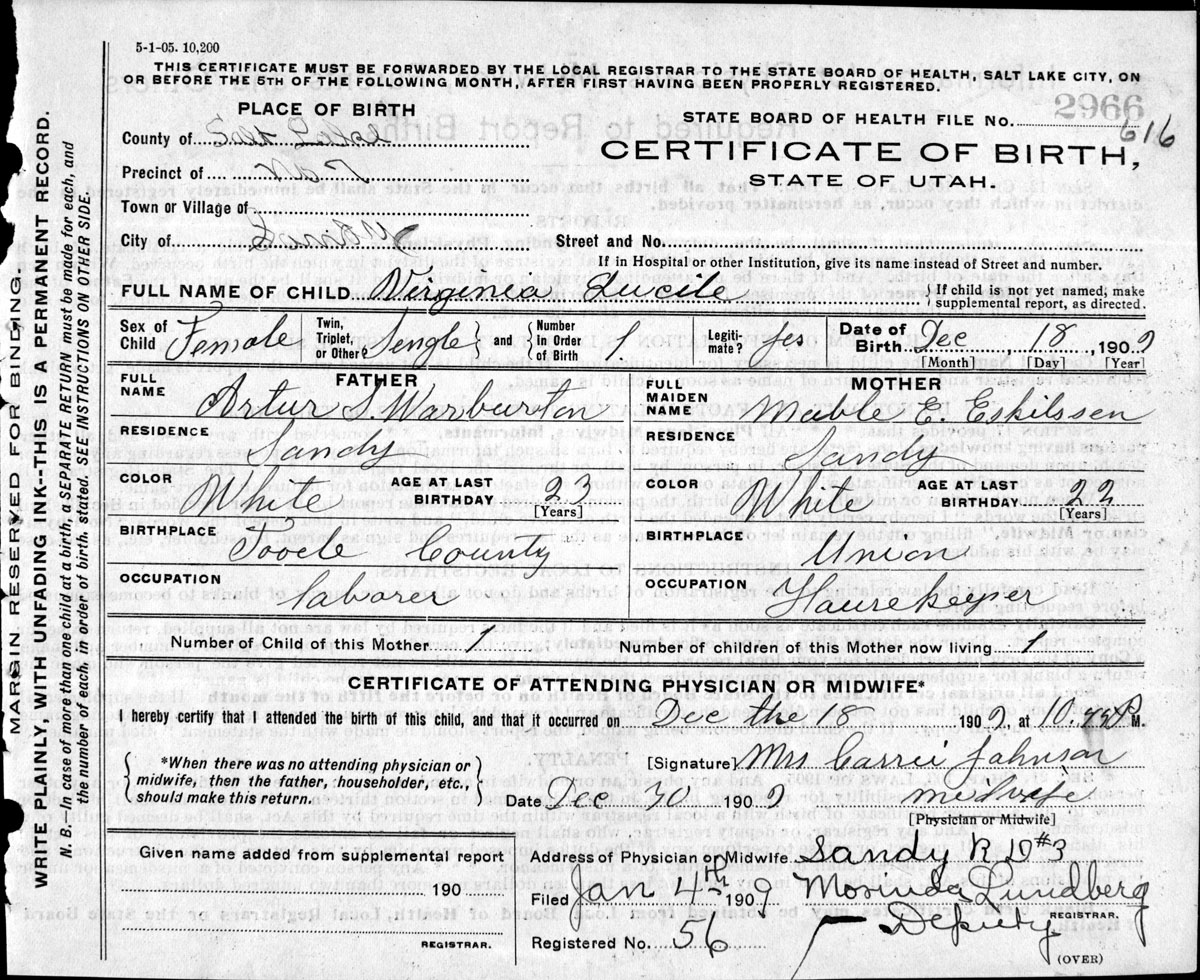 5-1-05. 10,200
THIS CERTIFICATE MUST BE FORWARDED BY THE LOCAL REGISTRAR TO THE STATE BOARD OF HEALTH, SALT LAKE CITY, ON
OR BEFORE THE 5TH OF THE FOLLOWING MONTH, AFTER FIRST HAVING BEEN PROPERLY REGISTERED.
2966
PLACE OF BIRTH
STATE BOARD OF HEALTH FILE NO. 616
County of Salt Lake
CERTIFICATE OF BIRTH,
STATE OF UTAH.
Precinct of
Town or Village of
City of
Street and No.
If in Hospital or other Institution, give its name instead of Street and number.
FULL NAME OF CHILD Virginia Lucile
{ If child is not yet named, make
supplemental report, as directed.
Sex of Child Female
Twin, Triplet, or Other Single } and { Number In Order of Birth 1
Legiti-mate? yes
Date of Birth Dec 18, 1909
[Month] [Day] [Year]
FATHER
FULL NAME Artur S. Warburton
RESIDENCE Sandy
COLOR White AGE AT LAST BIRTHDAY 23
[Years]
BIRTHPLACE Tooele County
OCCUPATION laborer
MOTHER
FULL MAIDEN NAME Mable E. Eskilssen
RESIDENCE Sandy
COLOR White AGE AT LAST BIRTHDAY 22
[Years]
BIRTHPLACE Union
OCCUPATION Hausekeper
Number of Child of this Mother 1
Number of children of this Mother now living 1
CERTIFICATE OF ATTENDING PHYSICIAN OR MIDWIFE*
I hereby certify that I attended the birth of this child, and that it occurred on Dec the 18 1909, at 10. P M.
{ *When there was no attending physician or
midwife, then the father, householder, etc.,
should make this return. }
[Signature] Mrs Carrie Johnson
Date Dec 30 1909 midwife
[Physician or Midwife]
Given name added from supplemental report
190
REGISTRAR.
Address of Physician or Midwife Sandy R D #3
Filed Jan 4th 1909 Morinda Lundberg
REGISTRAR.
Deputy
Registered No. 56
(OVER)
MARGIN RESERVED FOR BINDING.
WRITE PLAINLY WITH UNFADING INK--THIS IS A PERMANENT RECORD.
N. B.—In case of more than one child at a birth, a SEPARATE RETURN must be made for each, and
the number of each, in order of birth, stated. SEE INSTRUCTIONS ON OTHER SIDE.